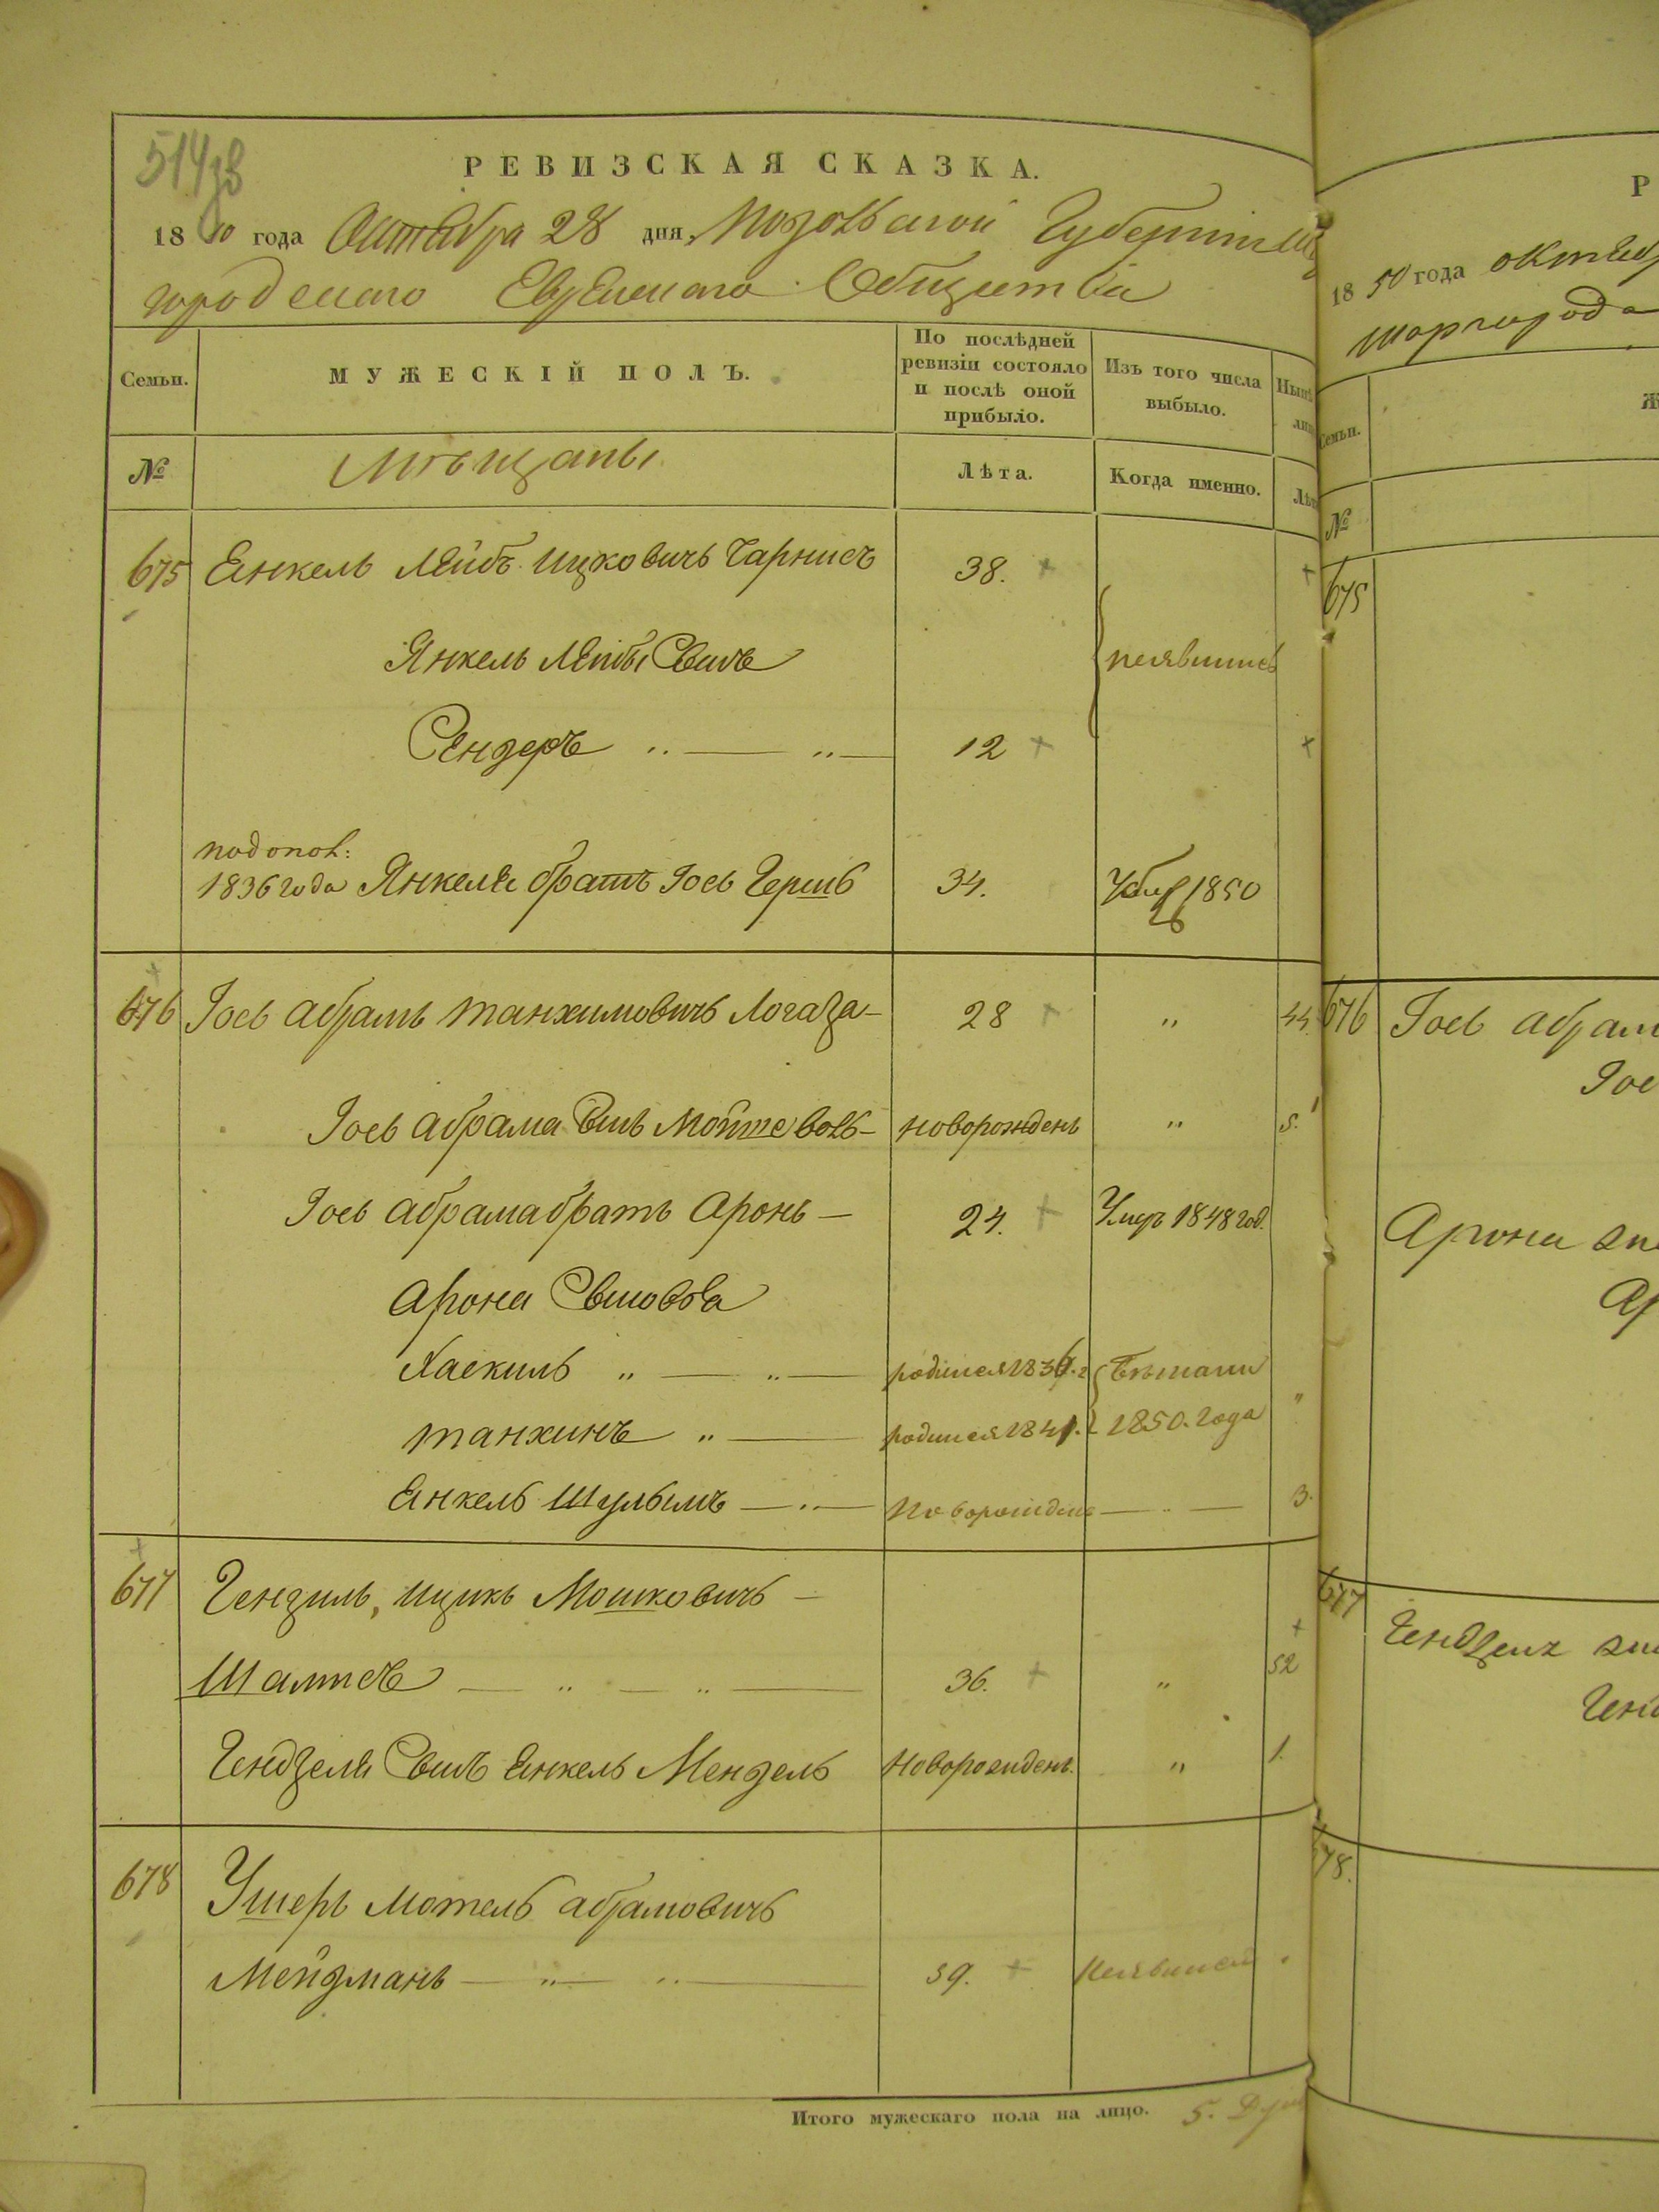 514
РЕВИЗСКАЯ СКАЗКА.
1850 года Октября 28 дня, Подольской Губерніи
городскаго Еврейскаго Общества
Семьи.
МУЖЕСКІЙ ПОЛЪ.
По послѣдней
ревизіи состояло
и послѣ оной
прибыло.
Изъ того числа
выбыло.
№
Мѣщаны
Лѣта.
Когда именно.
675 Енкель Лейбъ Ицковичъ Чарнисъ 38.
Янкель Лейбы Сынъ
неявились
Сендеръ 12
1836 года Янкеля братъ Іось Гершъ 34. 1850
676 Іось Абрамъ Танхимовичъ Логаза 28 " 44.
Іось Абрама Сынъ Мойше Вольъ новорожденъ " 5.
Іось Абрама братъ Аронъ 24. Умеръ 1848 год.
Арона Сыновья
Хаскиль " " родился 1836.г Бѣжали
Танхинъ " родился 1841. 1850. года "
Енкель Шулымъ Новорожден 3.
677 Гендзиль, Ицикъ Мошковичъ
Шалтсъ 36. " 52
Гендзеля Сынъ Енкель Мендель Новорожденъ. " 1.
678 Ушеръ Мотель Абрамовичъ
Мейдманъ 59. неявился
Итого мужескаго пола на лицо. 5. Душ
Р
1850 года Октяб
Шаргорода
Семьи.
Ж
№
675
676 Іось Абрам
Іос
Арона
Ар
677
Гендзеля
Генд
678.